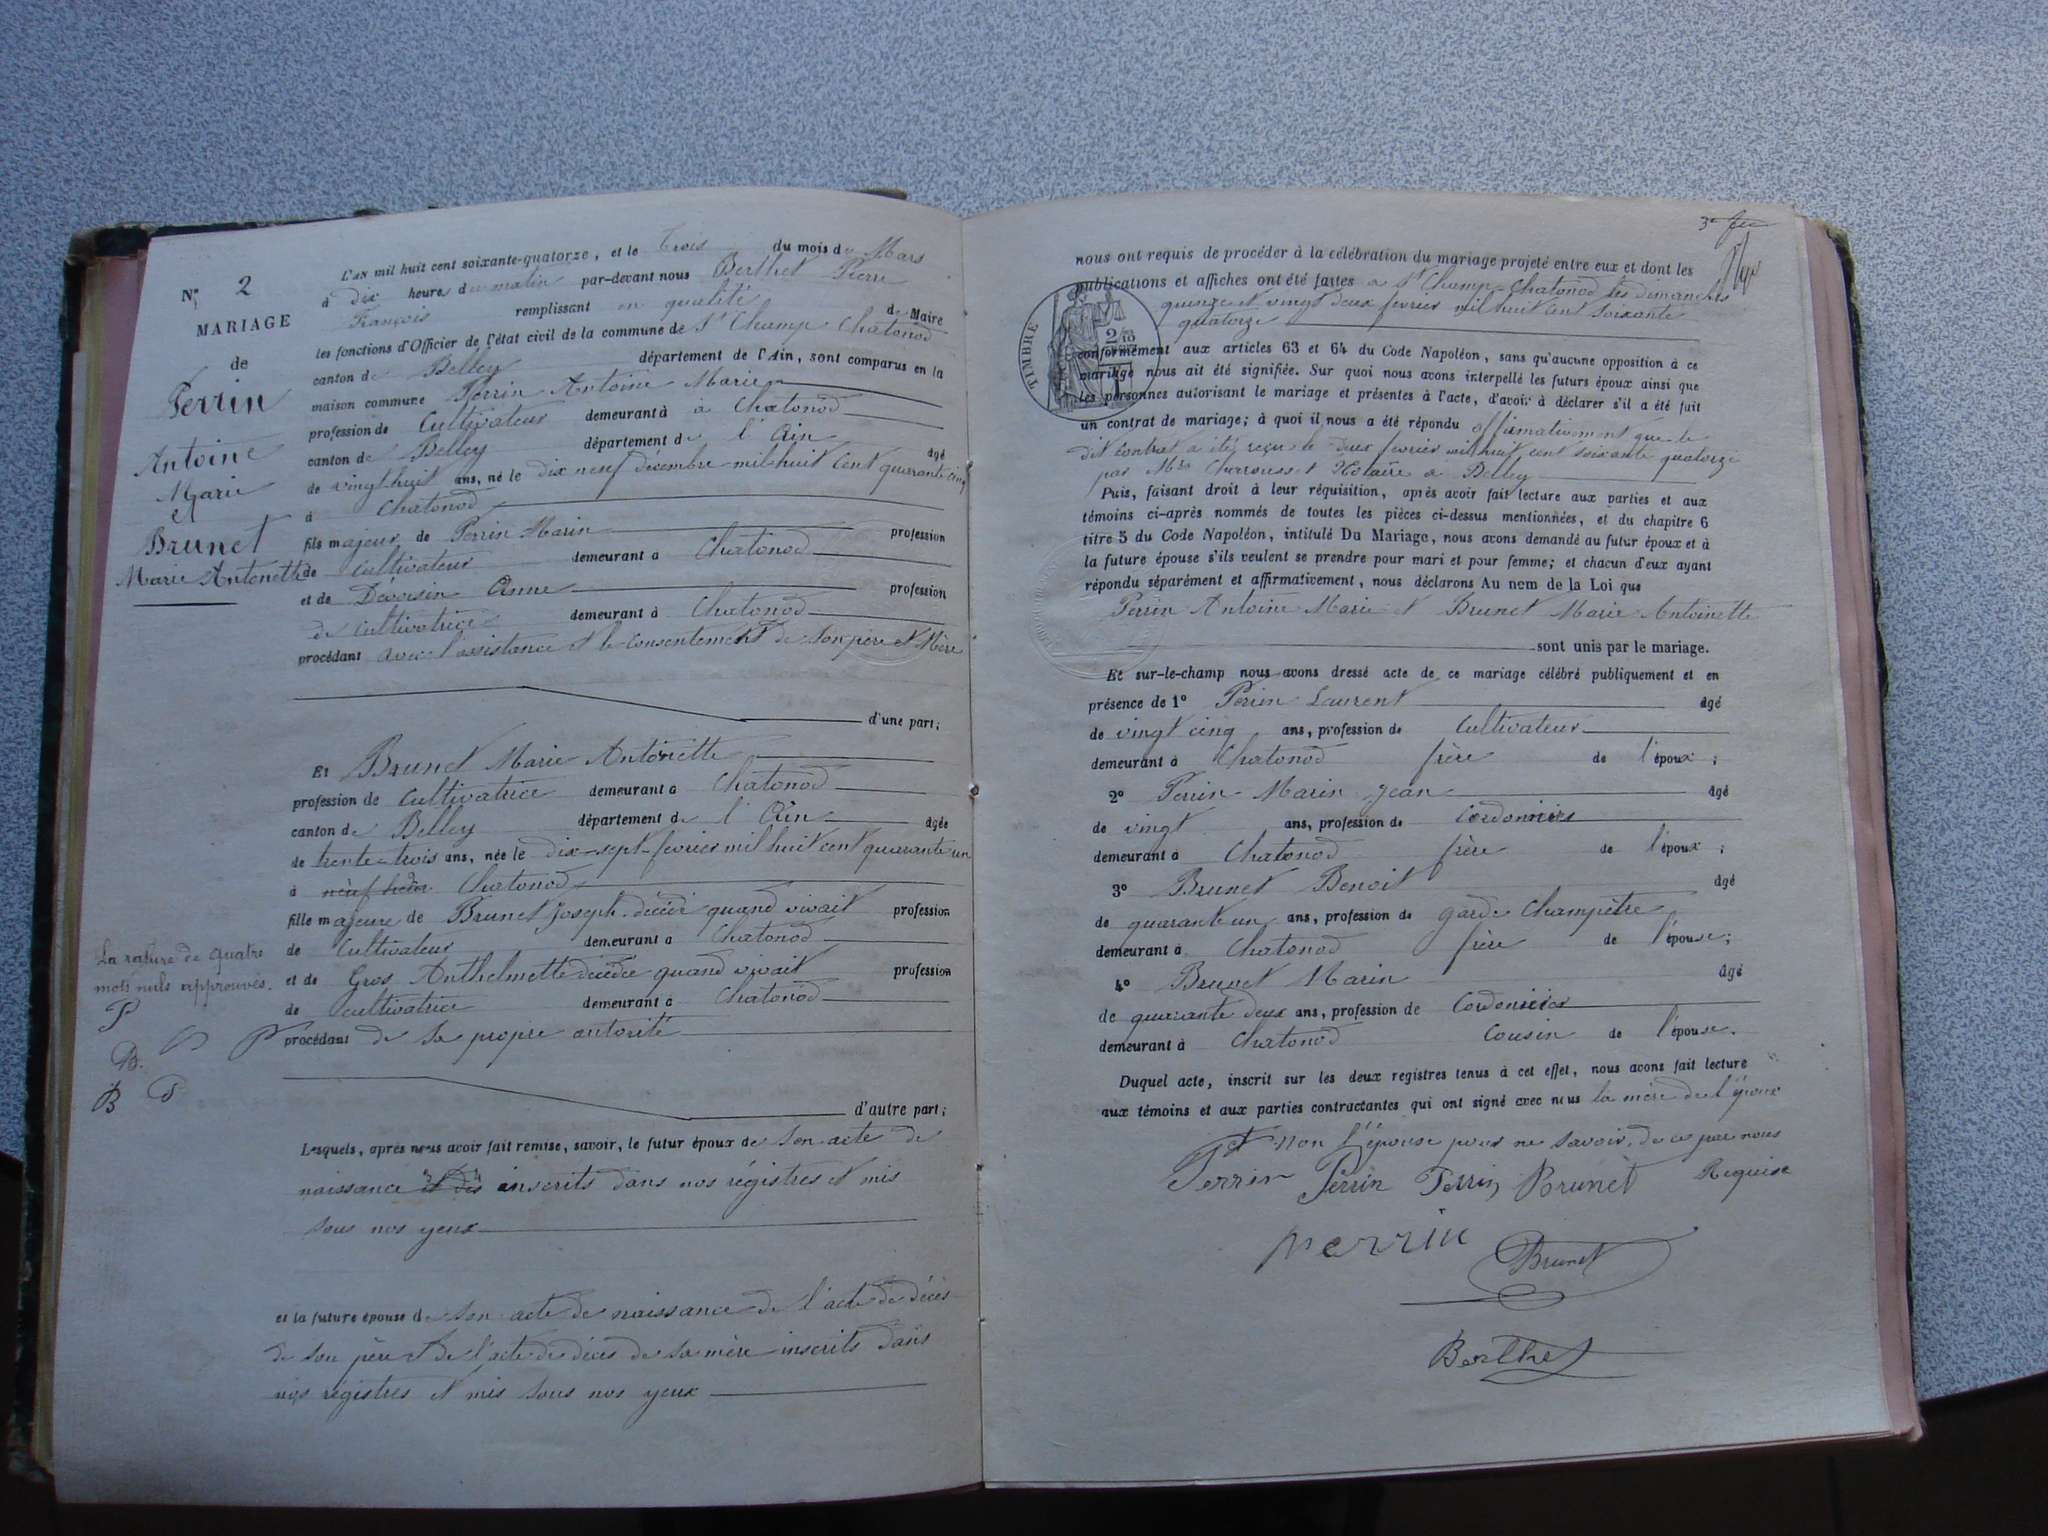 N° 2
MARIAGE
de
Perrin
Antoine
Marie
et
Brunet
Marie Antonette
La rature de quatre
mots nuls approuvés.
P
P P
B.
B P
L'AN mil huit cent soixante-quatorze, et le Trois du mois de Mars
à dix heure du matin par-devant nous Berthet Pierre
François remplissant en qualité de Maire
les fonctions d'Officier de l'état civil de la commune de St Champ Chatonod
canton de Belley département de l'Ain, sont comparus en la
maison commune Perrin Antoine Marie
profession de Cultivateur demeurant à à Chatonod
canton de Belley département de l'Ain âgé
de vingt huit ans, né le dix neuf décembre mil huit cent quarante cinq
à Chatonod
fils majeur de Perrin Marin profession
de Cultivateur demeurant à Chatonod
et de Dévoisin Anne profession
de cultivatrice demeurant à Chatonod
procédant avec l'assistance et le consentement de son père et Mère
d'une part;
Et Brunet Marie Antoinette
profession de Cultivatrice demeurant à Chatonod
canton de Belley département de l'Ain âgée
de trente-trois ans, née le dix-sept fevrier mil huit cent quarante un
à neuf heur Chatonod
fille majeure de Brunet Joseph décédé quand vivait profession
de Cultivateur demeurant à Chatonod
et de Gros Anthelmette décédée quand vivait profession
de cultivatrice demeurant à Chatonod
procédant de sa propre autorité
d'autre part;
Lesquels, après nous avoir fait remise, savoir, le futur époux de son acte de
naissance et des inscrits dans nos régistres et mis
sous nos yeux
et la future épouse de son acte de naissance de l'acte de décès
de son père et de l'acte de décès de sa mère inscrits dans
nos régistres et mis sous nos yeux
3e
nous ont requis de procéder à la célébration du mariage projeté entre eux et dont les
publications et affiches ont été faites à St Champ-Chatonod les dimanches
quinze et vingt deux fevrier mil huit cent soixante
quatorze
TIMBRE
conformément aux articles 63 et 64 du Code Napoléon, sans qu'aucune opposition à ce
mariage nous ait été signifiée. Sur quoi nous avons interpellé les futurs époux ainsi que
les personnes autorisant le mariage et présentes à l'acte, d'avoir à déclarer s'il a été fait
un contrat de mariage; à quoi il nous a été répondu affirmativement que le
dit contrat a été reçu le deux fevrier mil huit cent soixante quatorze
par Mtre Charousset Notaire à Belley
Puis, faisant droit à leur réquisition, après avoir fait lecture aux parties et aux
témoins ci-après nommés de toutes les pièces ci-dessus mentionnées, et du chapitre 6
titre 5 du Code Napoléon, intitulé Du Mariage, nous avons demandé au futur époux et à
la future épouse s'ils veulent se prendre pour mari et pour femme; et chacun d'eux ayant
répondu séparément et affirmativement, nous déclarons Au nom de la Loi que
Perrin Antoine Marie et Brunet Marie Antoinette
sont unis par le mariage.
Et sur-le-champ nous avons dressé acte de ce mariage célébré publiquement et en
présence de 1° Perrin Laurent âgé
de vingt cinq ans, profession de Cultivateur
demeurant à Chatonod frère de l'époux;
2° Perrin Marin Jean âgé
de vingt ans, profession de Cordonnier
demeurant à Chatonod frère de l'époux;
3° Brunet Benoit âgé
de quarante un ans, profession de garde Champêtre
demeurant à Chatonod frère de l'épouse;
4° Brunet Marin âgé
de quarante deux ans, profession de Cordonnier
demeurant à Chatonod Cousin de l'épouse.
Duquel acte, inscrit sur les deux registres tenus à cet effet, nous avons fait lecture
aux témoins et aux parties contractantes qui ont signé avec nous la mère de l'époux
et non l'épouse pour ne savoir, de ce par nous
Requise
Perrin Perrin Perrin Brunet
perrin
Brunet
Berthet